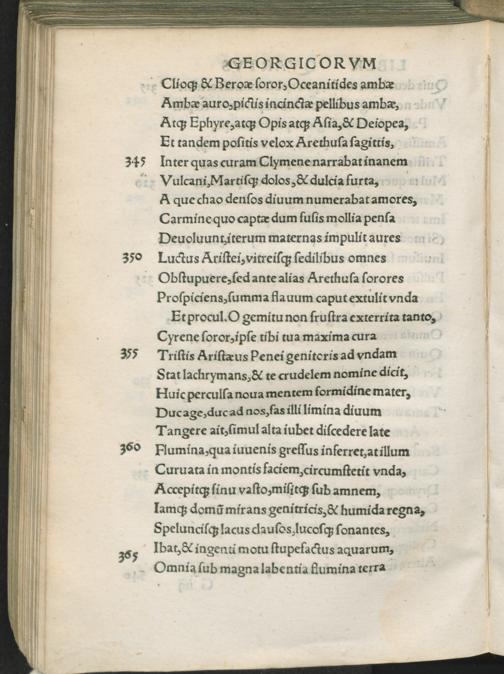 GEORGICORVM
Clioqꝫ & Beroæ ſoror, Oceanitides ambæ
Ambæ auro, pictis incinctæ pellibus ambæ,
Atqꝫ Ephyre, atqꝫ Opis atqꝫ Aſia, & Deiopea,
Et tandem poſitis velox Arethuſa ſagittis,
345 Inter quas curam Clymene narrabat inanem
Vulcani, Martiſqꝫ dolos, & dulcia furta,
A que chao denſos diuum numerabat amores,
Carmine quo captæ dum fuſis mollia penſa
Deuoluunt, iterum maternas impulit aures
350 Luctus Ariſtei, vitreiſqꝫ ſedilibus omnes
Obſtupuere, ſed ante alias Arethuſa ſorores
Proſpiciens, ſumma flauum caput extulit vnda
Et procul. O gemitu non fruſtra exterrita tanto,
Cyrene ſoror, ipſe tibi tua maxima cura
355 Triſtis Ariſtæus Penei genitoris ad vndam
Stat lachrymans, & te crudelem nomine dicit,
Huic perculſa noua mentem formidine mater,
Duc age, duc ad nos, fas illi limina diuum
Tangere ait, ſimul alta iubet diſcedere late
360 Flumina, qua iuuenis greſſus inferret, at illum
Curuata in montis faciem, circumſtetit vnda,
Accepitqꝫ ſinu vaſto, miſitqꝫ ſub amnem,
Iamqꝫ domū mirans genitricis, & humida regna,
Speluncisqꝫ lacus clauſos, lucoſqꝫ ſonantes,
365 Ibat, & ingenti motu ſtupefactus aquarum,
Omnia ſub magna labentia flumina terra